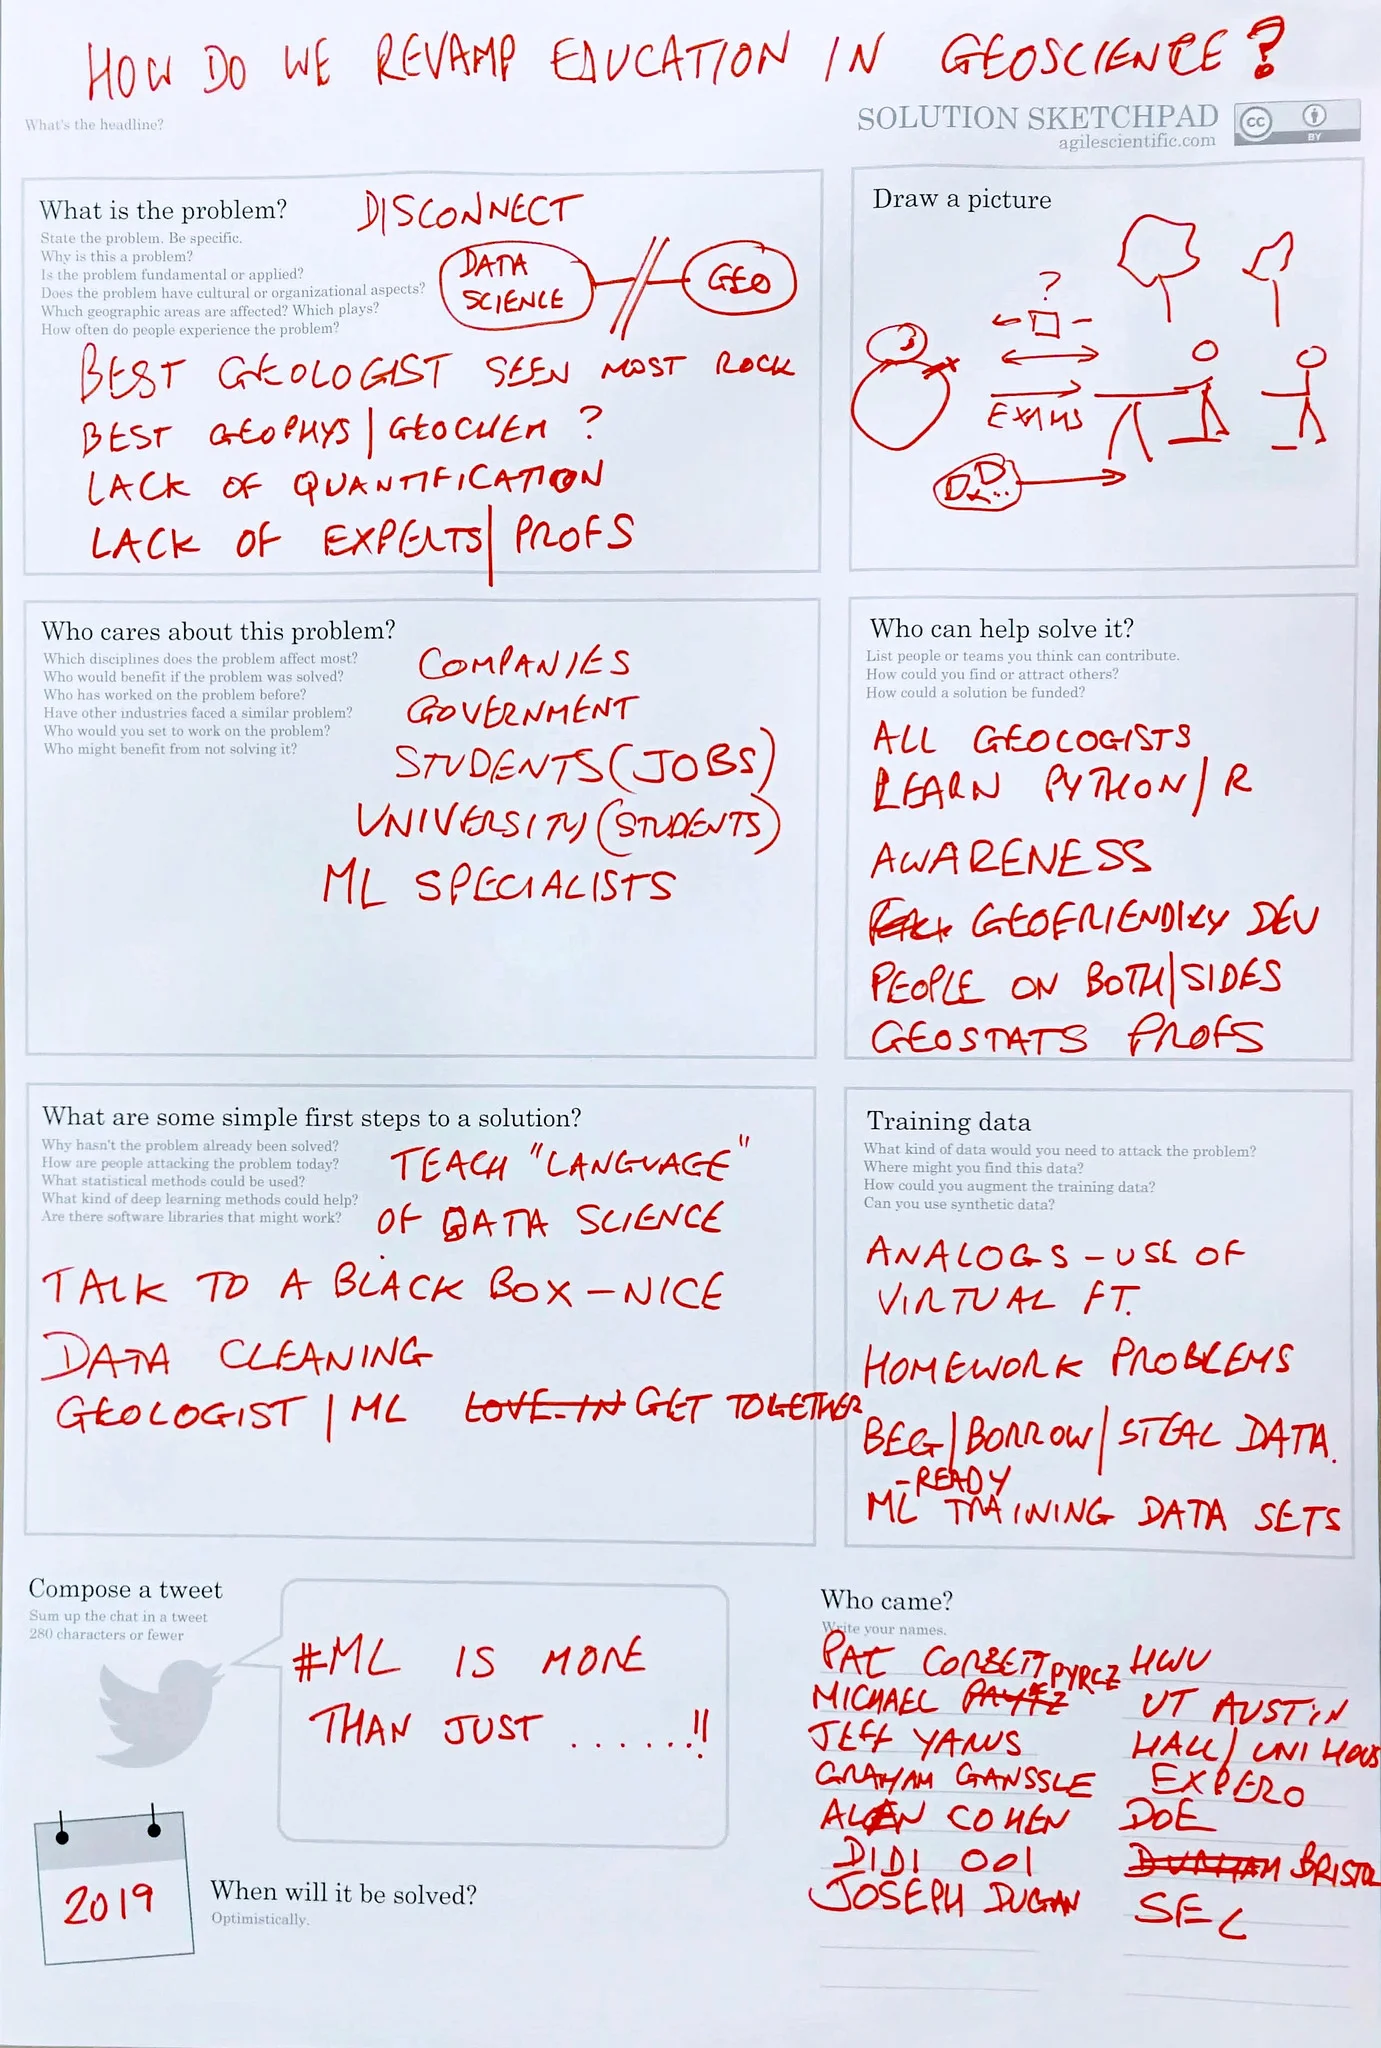 HOW DO WE REVAMP EDUCATION IN GEOSCIENCE?
What's the headline?
SOLUTION SKETCHPAD
agilescientific.com
cc BY
What is the problem?
State the problem. Be specific.
Why is this a problem?
Is the problem fundamental or applied?
Does the problem have cultural or organizational aspects?
Which geographic areas are affected? Which plays?
How often do people experience the problem?
DISCONNECT
DATA
SCIENCE
GEO
BEST GEOLOGIST SEEN MOST ROCK
BEST GEOPHYS/GEOCHEM ?
LACK OF QUANTIFICATION
LACK OF EXPERTS/PROFS
Draw a picture
?
EXAMS
Who cares about this problem?
Which disciplines does the problem affect most?
Who would benefit if the problem was solved?
Who has worked on the problem before?
Have other industries faced a similar problem?
Who would you set to work on the problem?
Who might benefit from not solving it?
COMPANIES
GOVERNMENT
STUDENTS (JOBS)
UNIVERSITY (STUDENTS)
ML SPECIALISTS
Who can help solve it?
List people or teams you think can contribute.
How could you find or attract others?
How could a solution be funded?
ALL GEOLOGISTS
LEARN PYTHON/R
AWARENESS
GEOFRIENDLY DEV
PEOPLE ON BOTH/SIDES
GEOSTATS PROFS
What are some simple first steps to a solution?
Why hasn't the problem already been solved?
How are people attacking the problem today?
What statistical methods could be used?
What kind of deep learning methods could help?
Are there software libraries that might work?
TEACH "LANGUAGE"
OF DATA SCIENCE
TALK TO A BLACK BOX - NICE
DATA CLEANING
GEOLOGIST / ML LOVE-IN GET TOGETHER
Training data
What kind of data would you need to attack the problem?
Where might you find this data?
How could you augment the training data?
Can you use synthetic data?
ANALOGS - USE OF
VIRTUAL FT.
HOMEWORK PROBLEMS
BEG/BORROW/STEAL DATA.
-READY
ML TRAINING DATA SETS
Compose a tweet
Sum up the chat in a tweet
280 characters or fewer
#ML IS MORE
THAN JUST ......!!
2019
When will it be solved?
Optimistically.
Who came?
Write your names.
PAT CORBETT HWU
MICHAEL PYRCZ UT AUSTIN
JEFF YARUS HALL/UNI HOUS
GRAHAM GANSSLE EXPERO
ALAN COHEN DOE
DIDI OOI DURHAM BRISTOL
JOSEPH DUGAN